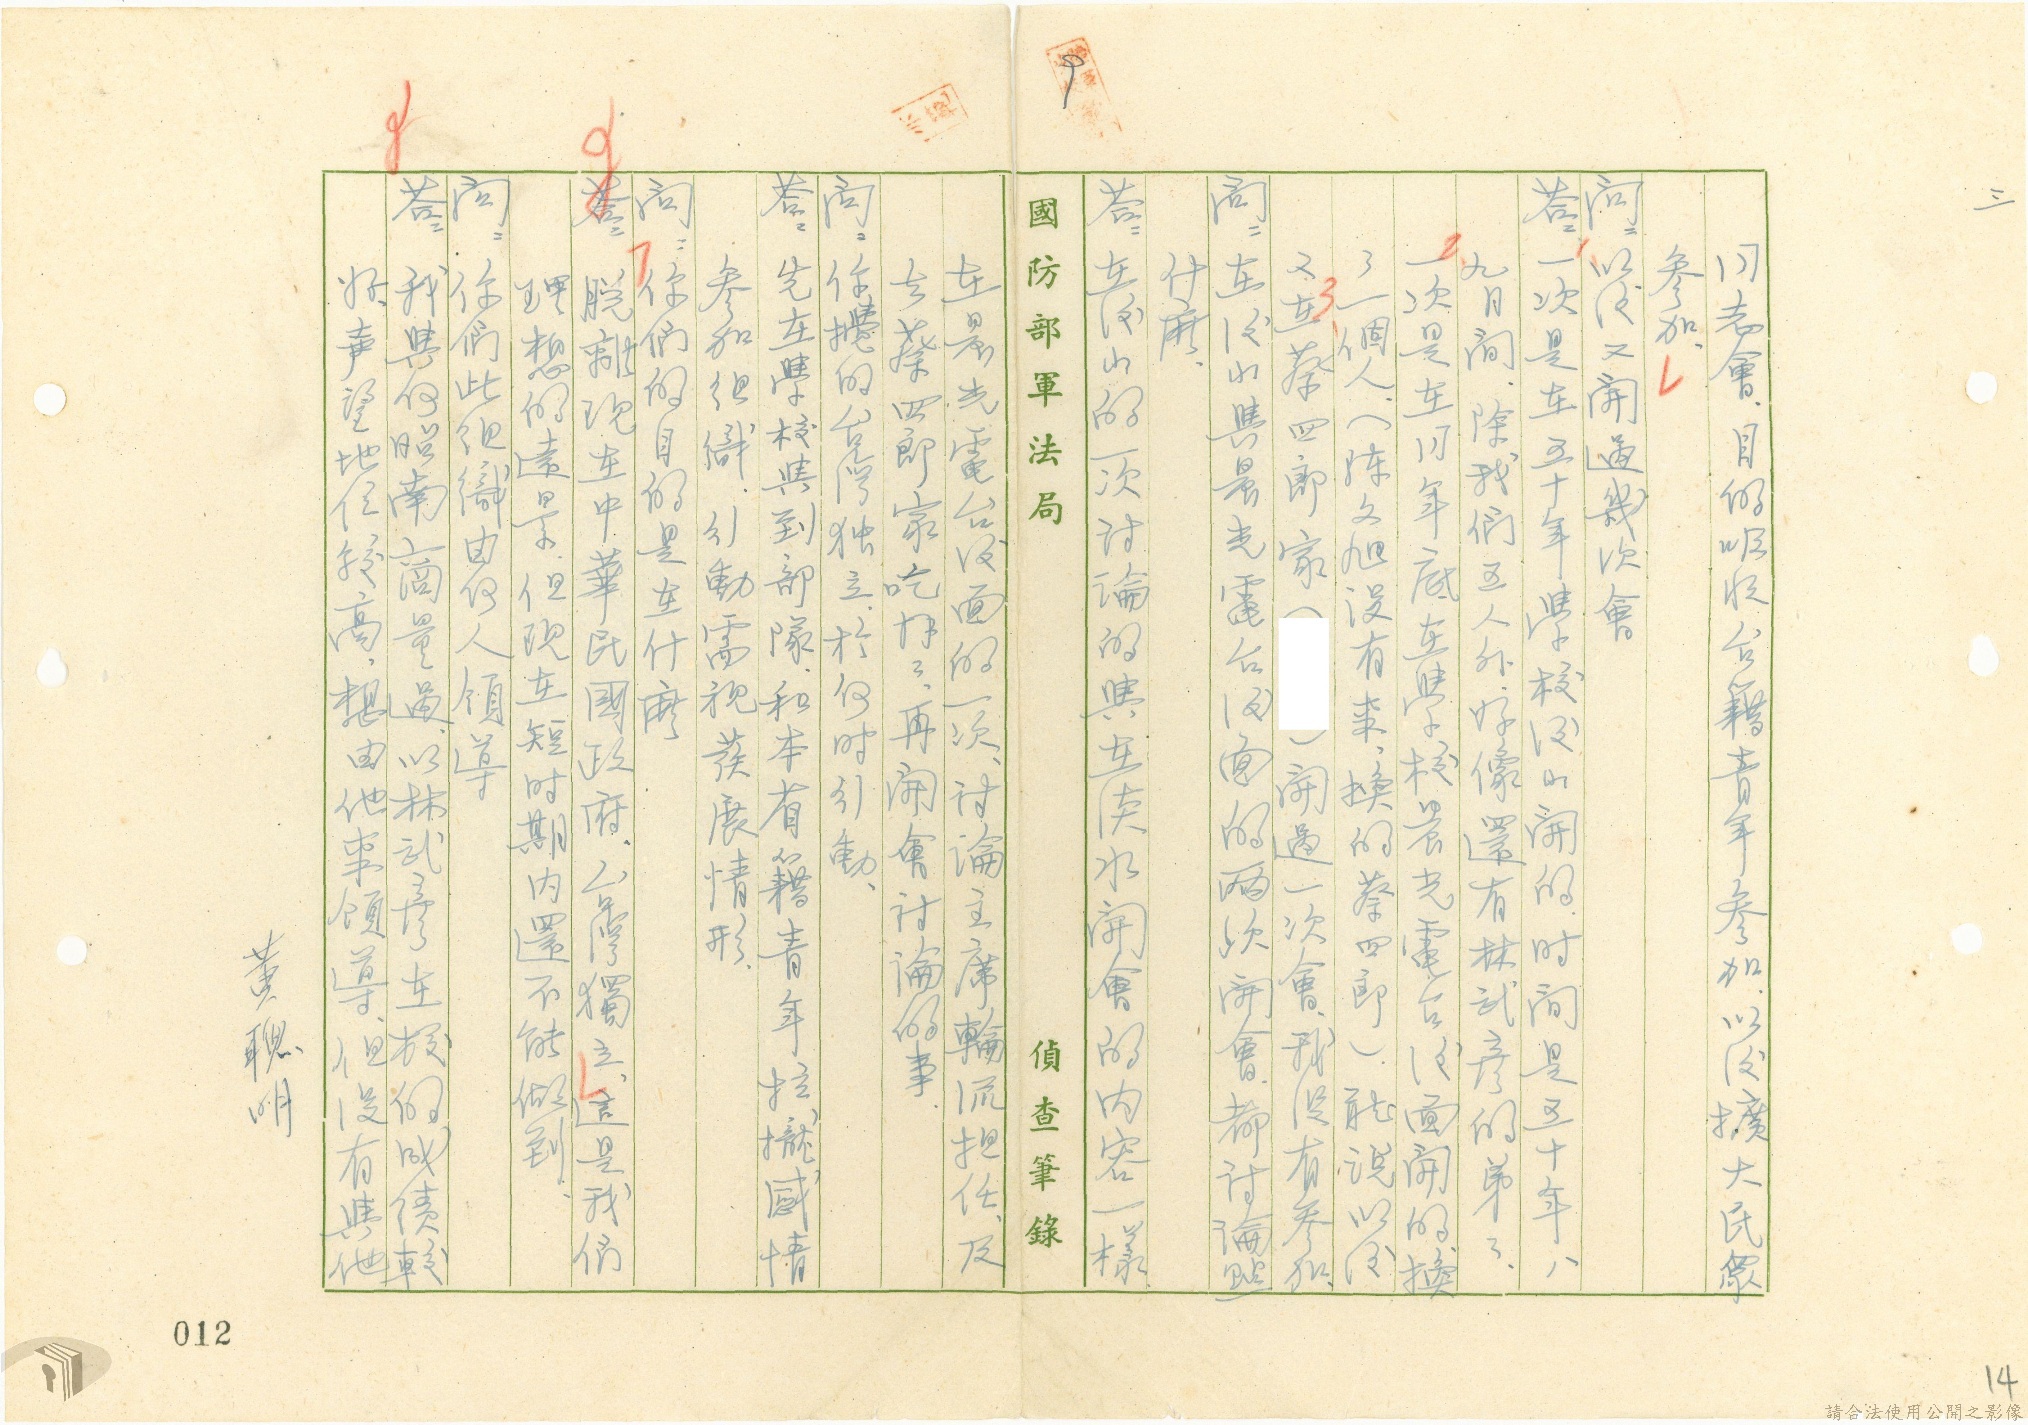 三
同志會、目的吸收台籍青年參加、以後擴大民眾
參加、
問：以後又開過幾次會
答：一次是在五十年學校後山開的、時間是五十年八
九月間、除我們五人外好像還有林武彥的弟弟、
一次是在同年底在學校晨光電台後面開的、換
了一個人、（陳文旭沒有來、換的蔡四郎）、聽說以後
又在蔡四郎家（ ）開過一次會、我沒有參加、
問：在後山與晨光電台後面的兩次開會、都討論些
什麼、
答：在後山的一次討論的與在淡水開會的內容一樣、
國防部軍法局 偵查筆錄
在晨光電台後面的一次、討論主席輪流担任、及
去蔡四郎家吃拜拜、再開會討論的事、
問：你攪的台灣独立、於何時引動、
答：先在學校與到部隊、和本省籍青年拉攏感情
參加組織、引動需視發展情形、
問：你們的目的是在什麼
答：脫離現在中華民國政府、台灣獨立、這是我們
理想的遠景、但現在短時期內還不能做到、
問：你們此組織由何人領導
答：我與何昭南商量過、以林武彥在校的成績較
好、聲望地位較高、想由他來領導、但沒有與他
黃聰明
012
14
請合法使用公開之影像